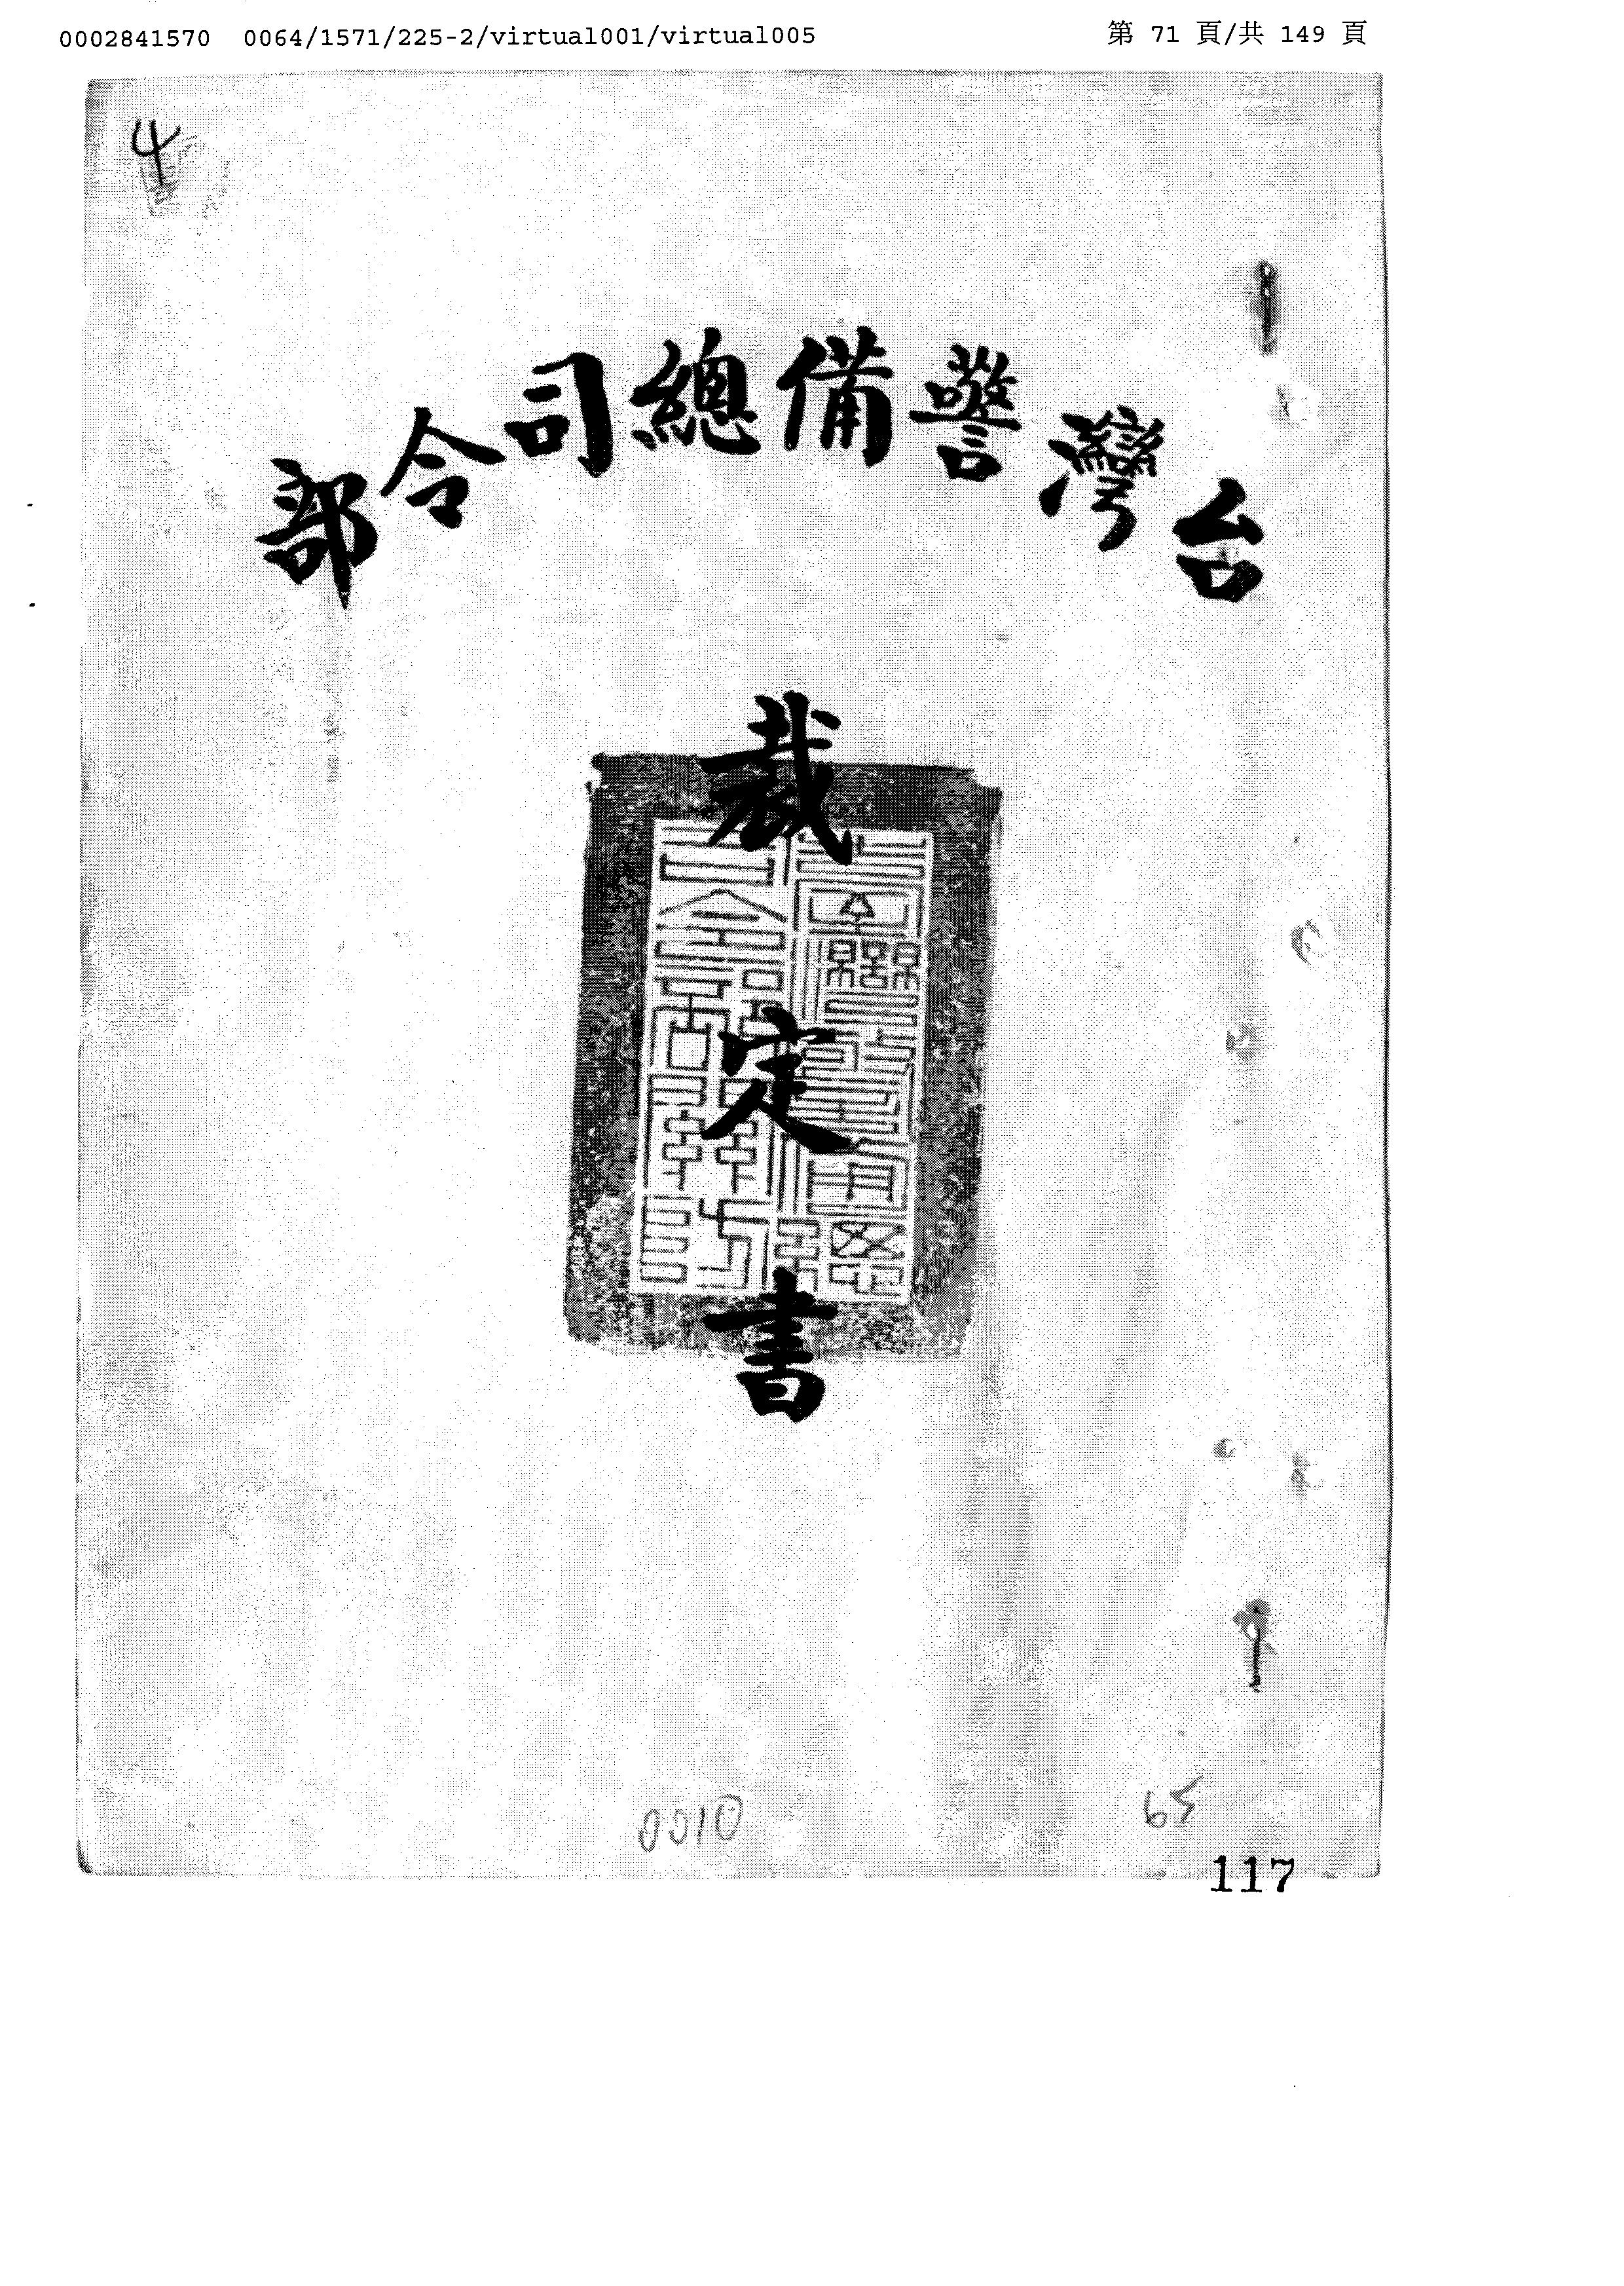 0002841570 0064/1571/225-2/virtual001/virtual005 第 71 頁/共 149 頁
4
台灣警備總司令部
裁定書
0010
65
117